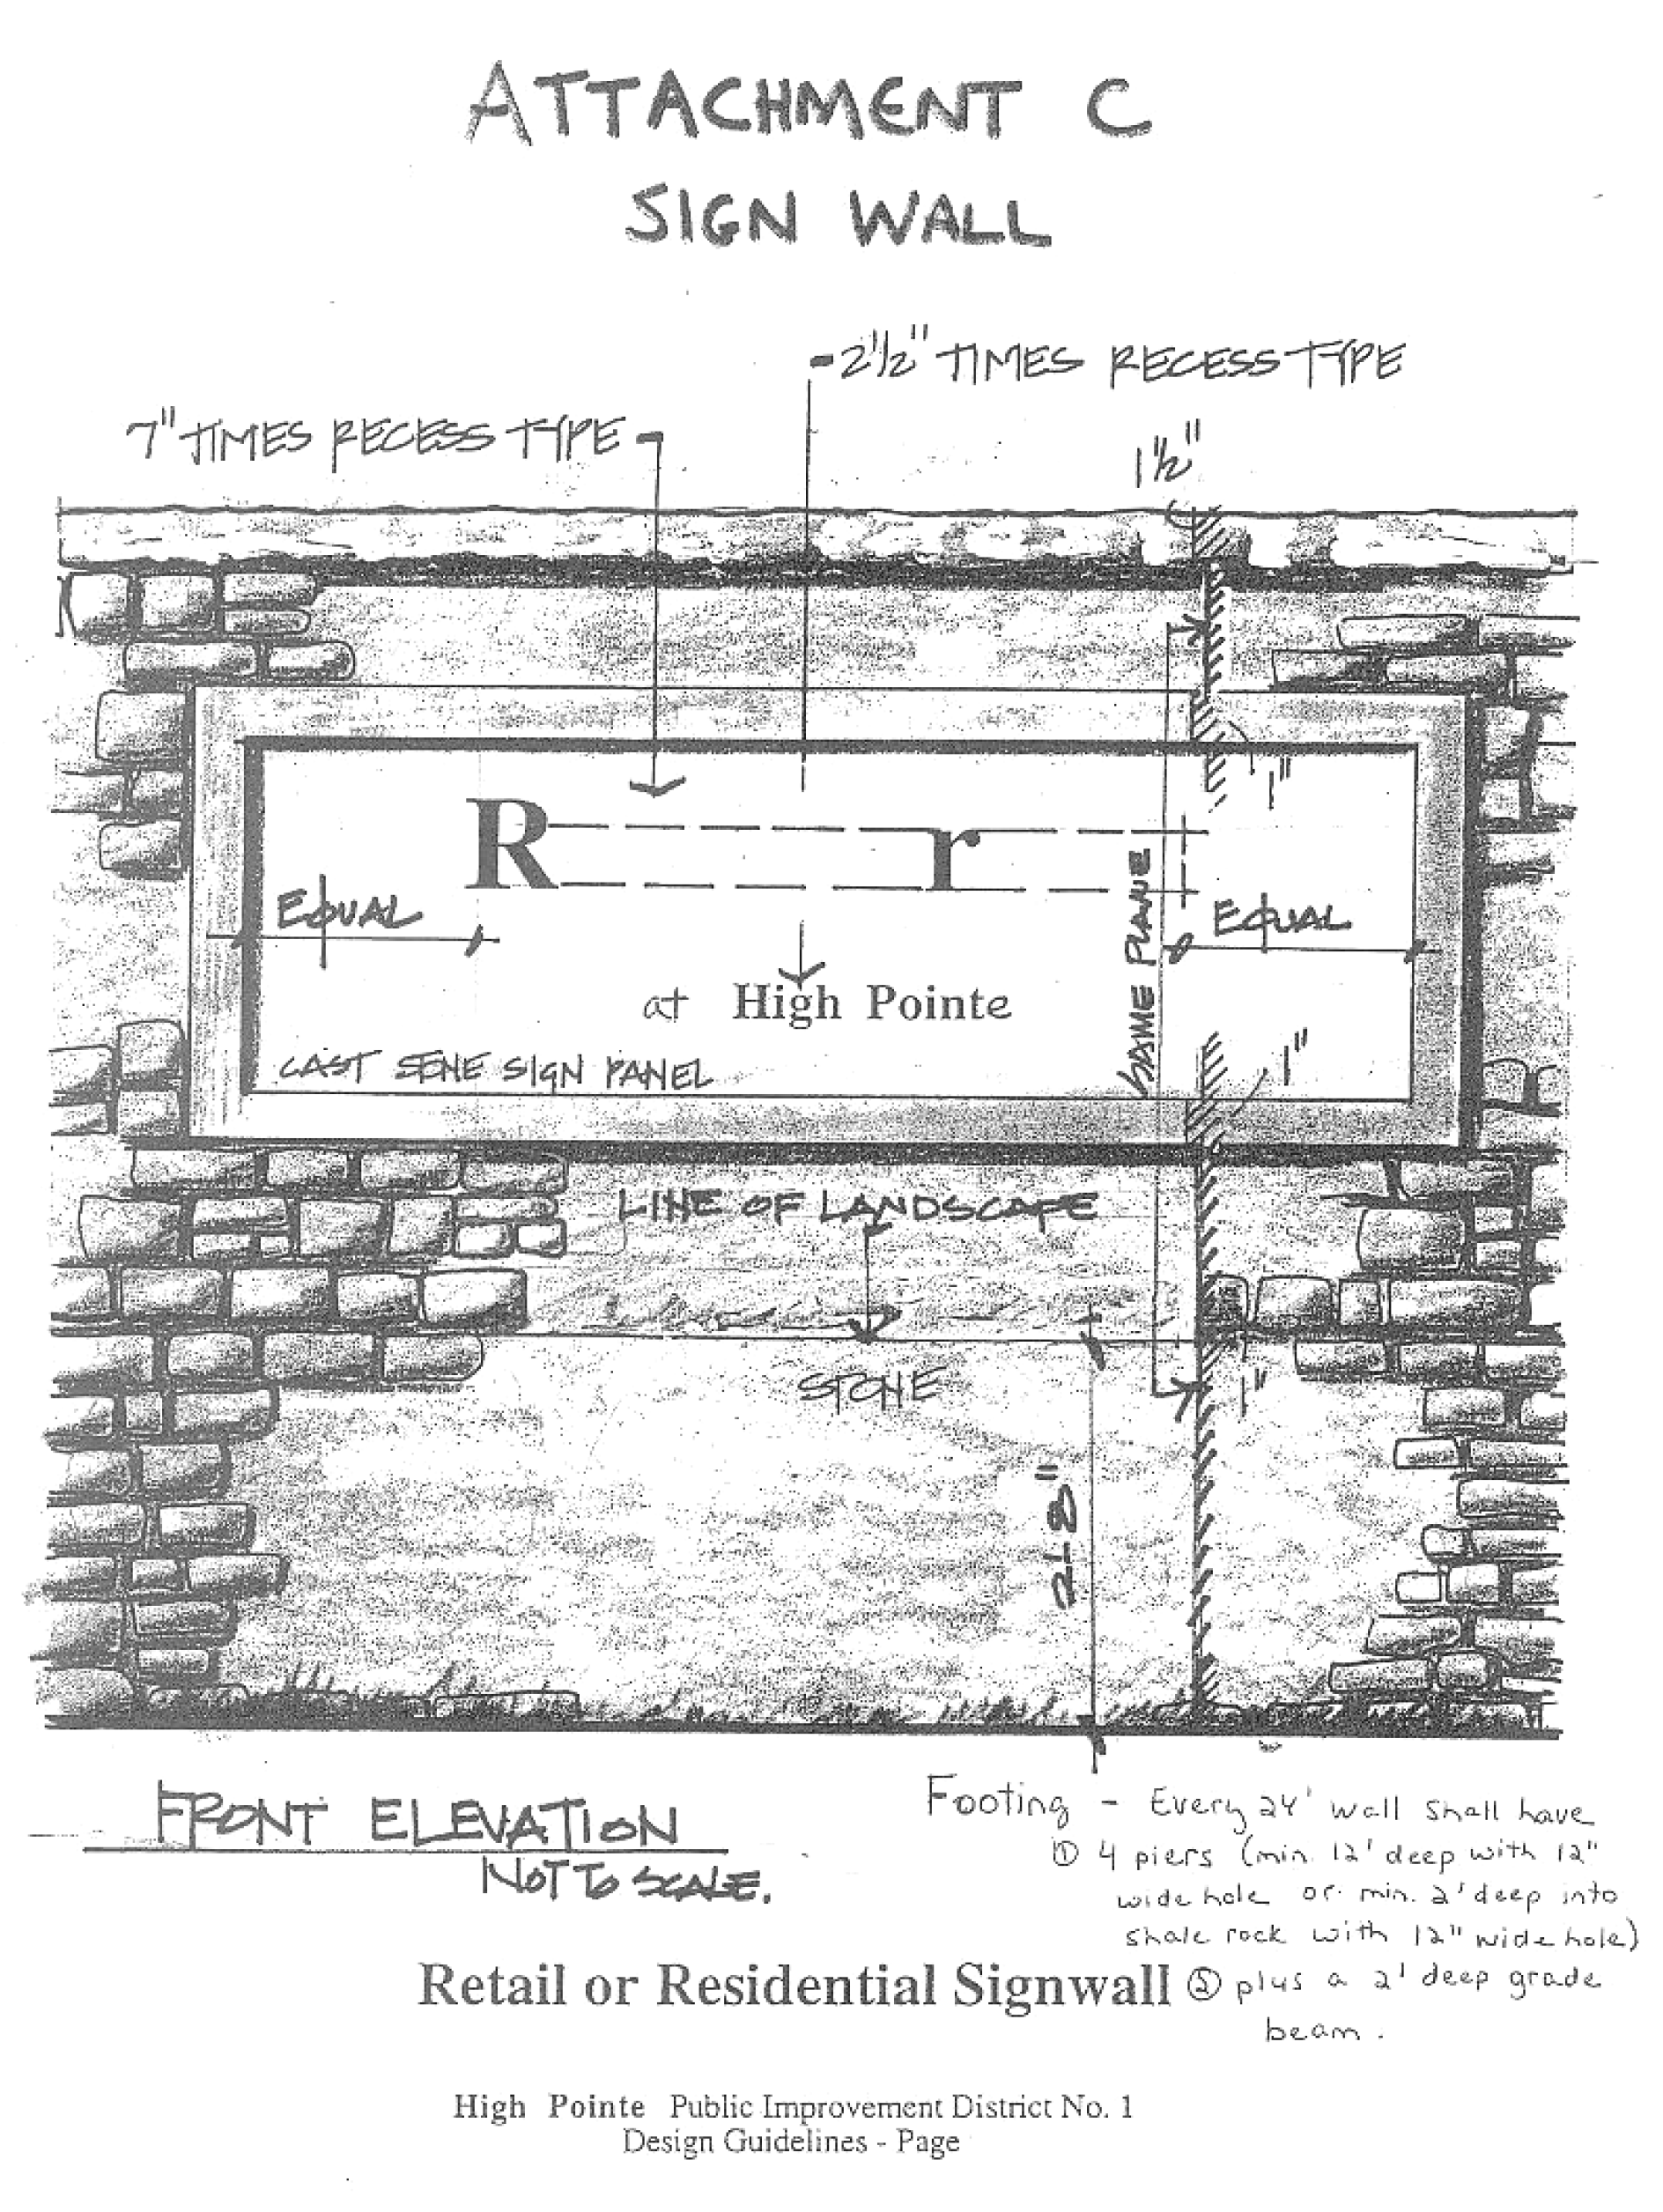 ATTACHMENT C
SIGN WALL
2½" TIMES RECESS TYPE
7" TIMES RECESS TYPE
1½"
1"
R r
SAME PLANE
EQUAL
EQUAL
at High Pointe
1"
CAST STONE SIGN PANEL
LINE OF LANDSCAPE
STONE
1"
2'8"
FRONT ELEVATION
NOT TO SCALE.
Footing - Every 24' wall shall have
① 4 piers (min. 12' deep with 12"
wide hole or min. 2' deep into
shale rock with 12" wide hole)
② plus a 2' deep grade
beam.
Retail or Residential Signwall
High Pointe Public Improvement District No. 1
Design Guidelines - Page